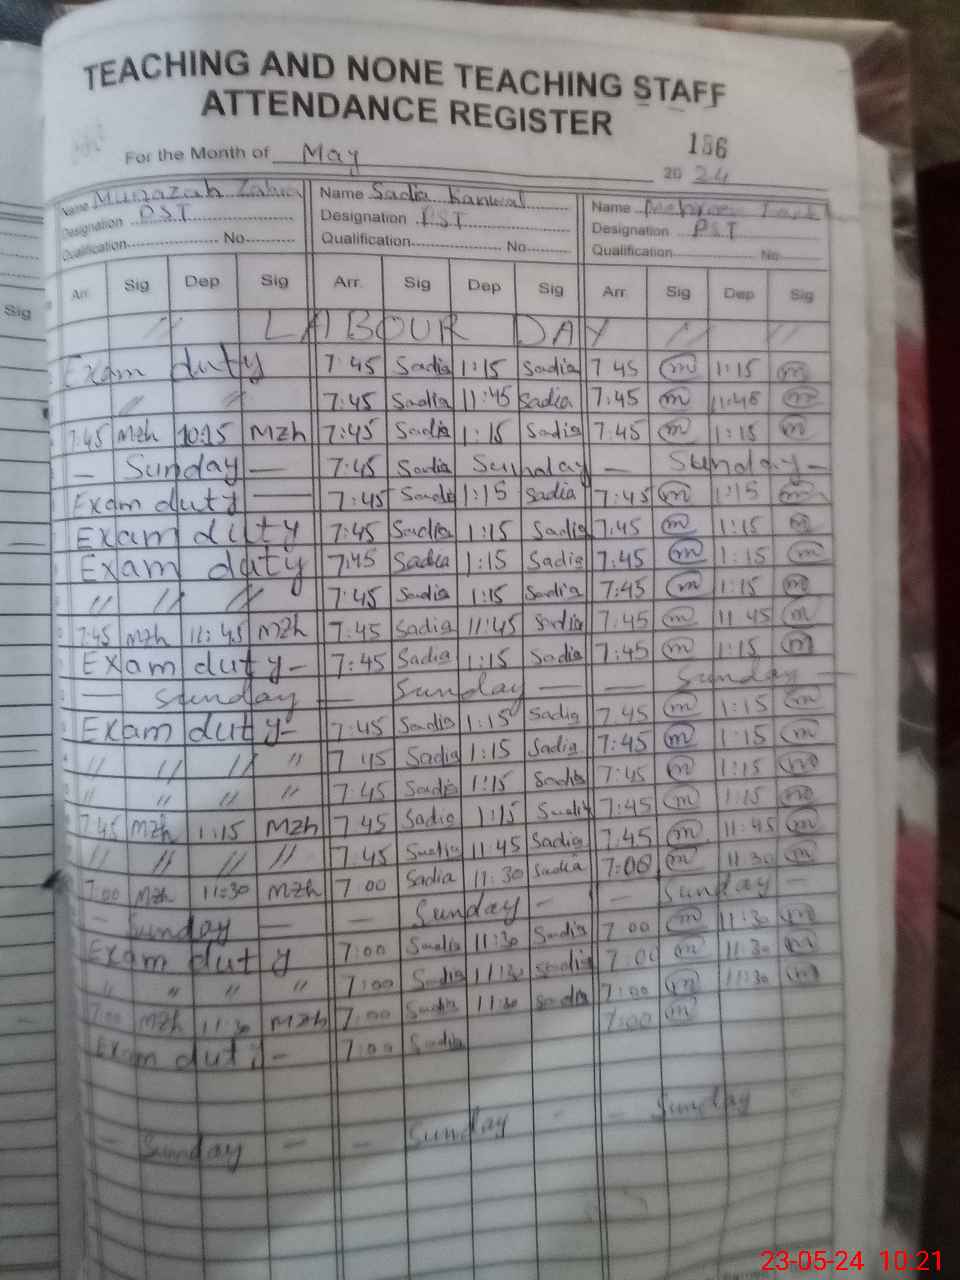 TEACHING AND NONE TEACHING STAFF
ATTENDANCE REGISTER
156
For the Month of May 2024
Name Munazah Name Sadia Kanwal Name
Designation PST Designation PST Designation PST
Qualification No Qualification No Qualification No
Sig Arr. Sig Dep Sig Arr. Sig Dep Sig Arr. Sig Dep Sig
// LABOUR DAY // //
Exam duty 7:45 Sadia 1:15 Sadia 7 45 m 1:15 m
// // 7:45 Sadia 11:45 Sadia 7:45 m 11:45 m
7:45 Mzh 10:15 Mzh 7:45 Sadia 1:15 Sadia 7:45 m 1:15 m
— Sunday — 7:45 Sadia Sunday — Sunday —
Exam duty — 7:45 Sadia 1:15 Sadia 7:45 m 1:15 m
Exam duty 7:45 Sadia 1:15 Sadia 7:45 m 1:15 m
Exam duty 7:45 Sadia 1:15 Sadia 7:45 m 1:15 m
// // // 7:45 Sadia 1:15 Sadia 7:45 m 1:15 m
7:45 Mzh 11:45 Mzh 7:45 Sadia 11:45 Sadia 7:45 m 11 45 m
Exam duty - 7:45 Sadia 1:15 Sadia 7:45 m 1:15 m
— Sunday — Sunday — — Sunday —
Exam duty - 7:45 Sadia 1:15 Sadia 7.45 m 1:15 m
// // // // 7 45 Sadia 1:15 Sadia 7:45 m 1:15 m
// // // // 7:45 Sadia 1:15 Sadia 7:45 m 1:15 m
7:45 Mzh 1:15 Mzh 7 45 Sadia 1:15 Sadia 7:45 m 1:15 m
// // // // 7:45 Sadia 11:45 Sadia 7:45 m 11:45 m
7:00 Mzh 11:30 Mzh 7 00 Sadia 11:30 Sadia 7:00 m 11 30 m
- Sunday — — Sunday - - Sunday -
Exam duty 7:00 Sadia 11:30 Sadia 7 00 m 11:30 m
// // // // 7:00 Sadia 11:30 Sadia 7:00 m 11.30 m
7:00 Mzh 11:30 Mzh 7:00 Sadia 11:30 Sadia 7:00 m 11:30 m
Exam duty - 7:00 Sadia 7:00 m
- Sunday - - Sunday - - Sunday
23-05-24 10:21